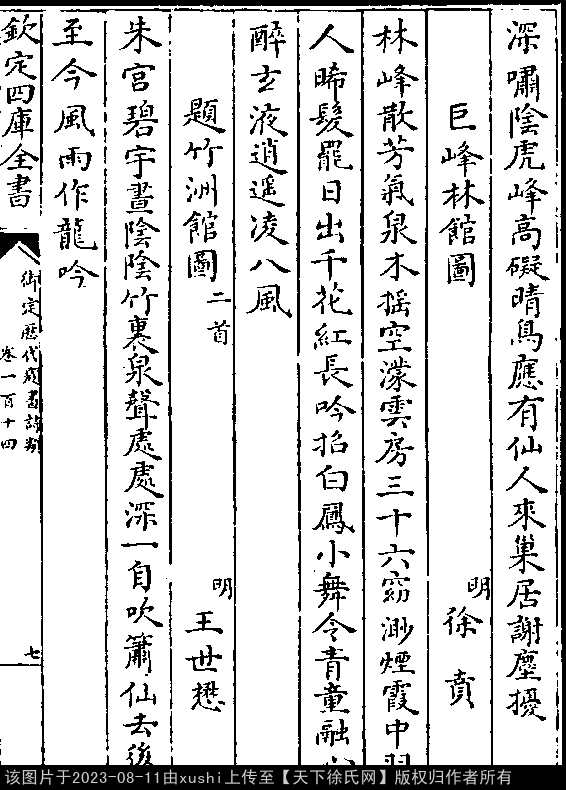 深嘯陰虎峰高礙晴鳥應有仙人來巢居謝塵擾
巨峰林館圖 明 徐賁
林峰散芳氣泉木搖空濛雲房三十六窈渺煙霞中
人晞髮罷日出千花紅長吟招白鳳小舞令青童融
醉玄液逍遥凌八風
題竹洲館圖二首 明 王世懋
朱宮碧宇晝陰陰竹裏泉聲處處深一自吹簫仙去後
至今風雨作龍吟
欽定四庫全書
御定歷代題畫詩類
卷一百十四
七
该图片于2023-08-11由xushi上传至【天下徐氏网】版权归作者所有